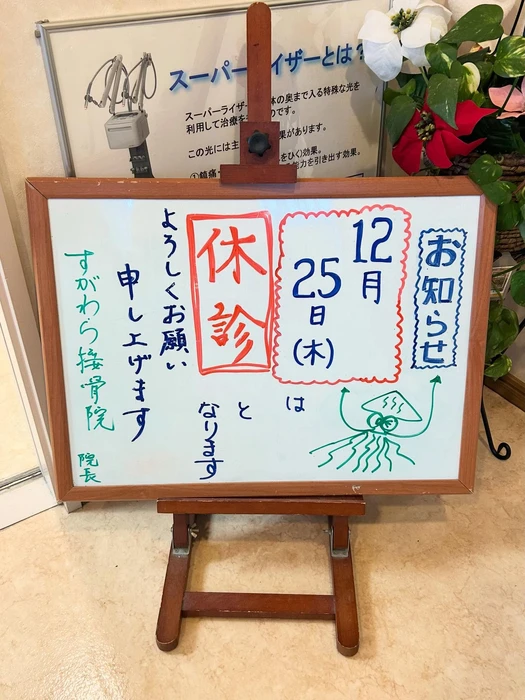 スーパーライザーとは？
スーパーライザー
体の奥まで入る特殊な光を
利用して治療を
のです。
この光には主
果があります。
をひく)効果。
能力を引き出す効果。
お知らせ
12月
25日
(木)
は
休診
と
なります
よろしくお願い
申し上げます
すがわら接骨院
院長